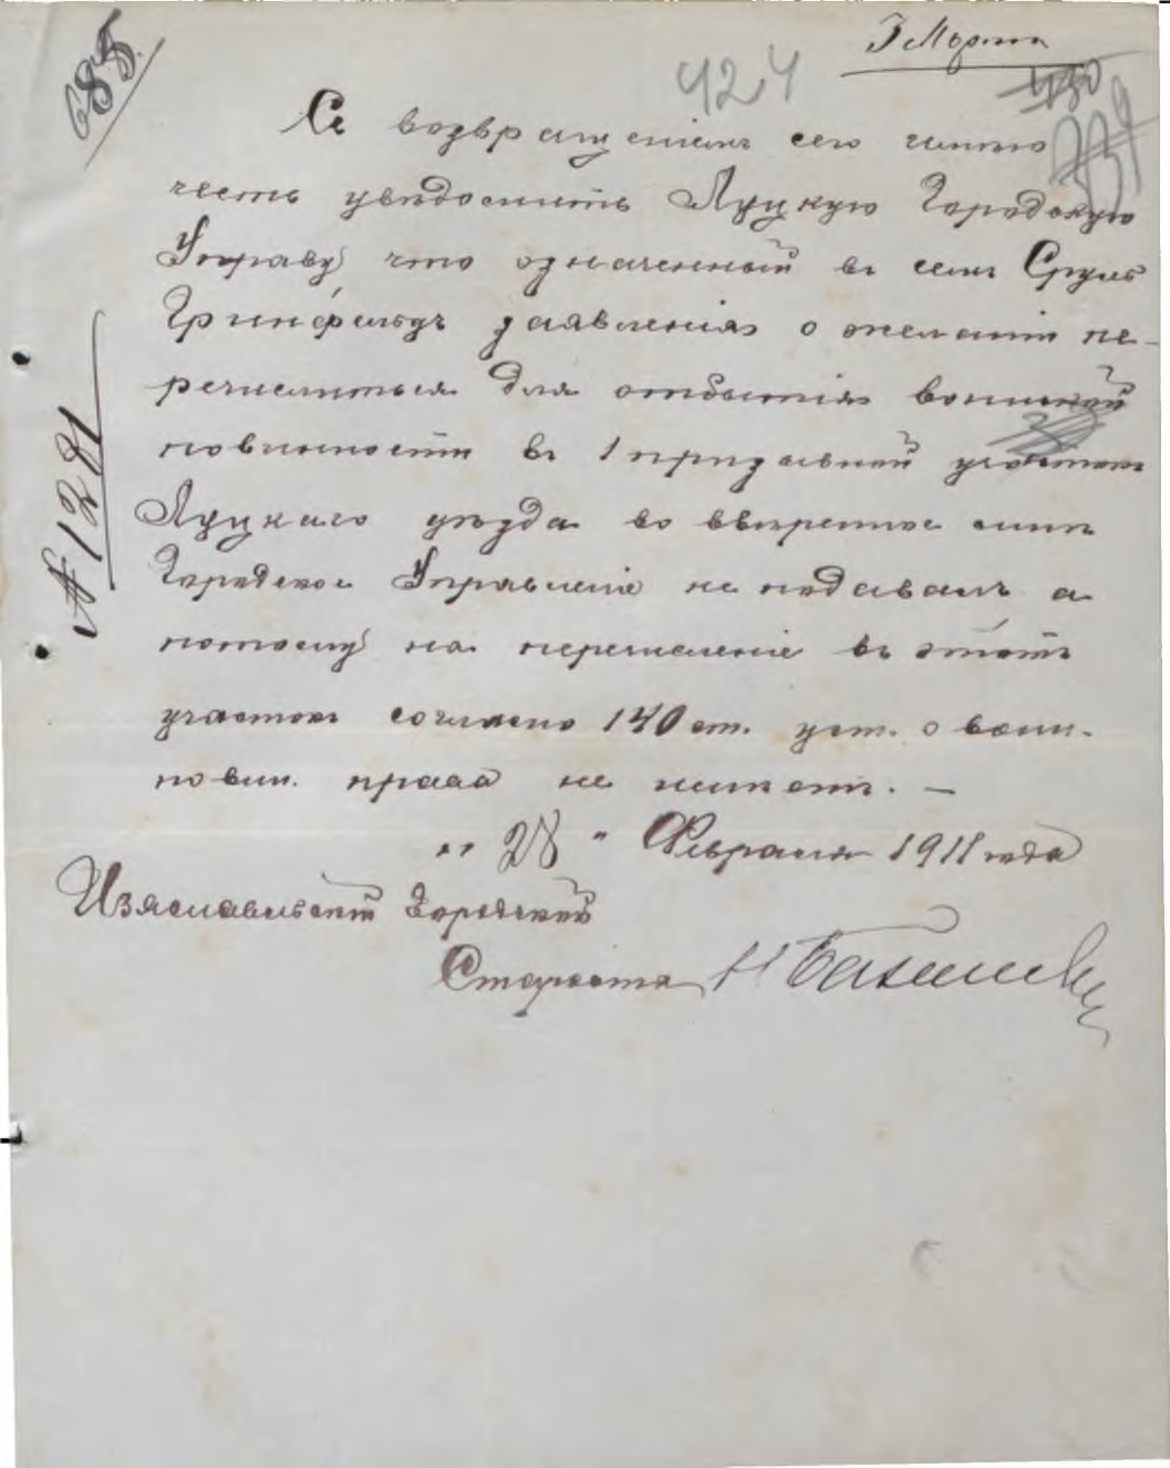 3 Марта
688.
424
Съ возвращеніемъ сего имѣю
честь увѣдомить Луцкую Городскую
Управу что означенный въ семъ Сруль
Гринфельдъ заявленія о желаніи пе-
речислиться для отбытія воинской
повинности въ 1 призывной участокъ
Луцкаго уѣзда во ввѣренное мнѣ
Городское Управленіе не подавалъ а
потому на перечисленіе въ этотъ
участокъ согласно 140 ст. уст. о воин.
повин. права не имѣетъ. —
„ 28 " Февраля 1911 года
Изяславльскій Городской
Староста
№ 1281